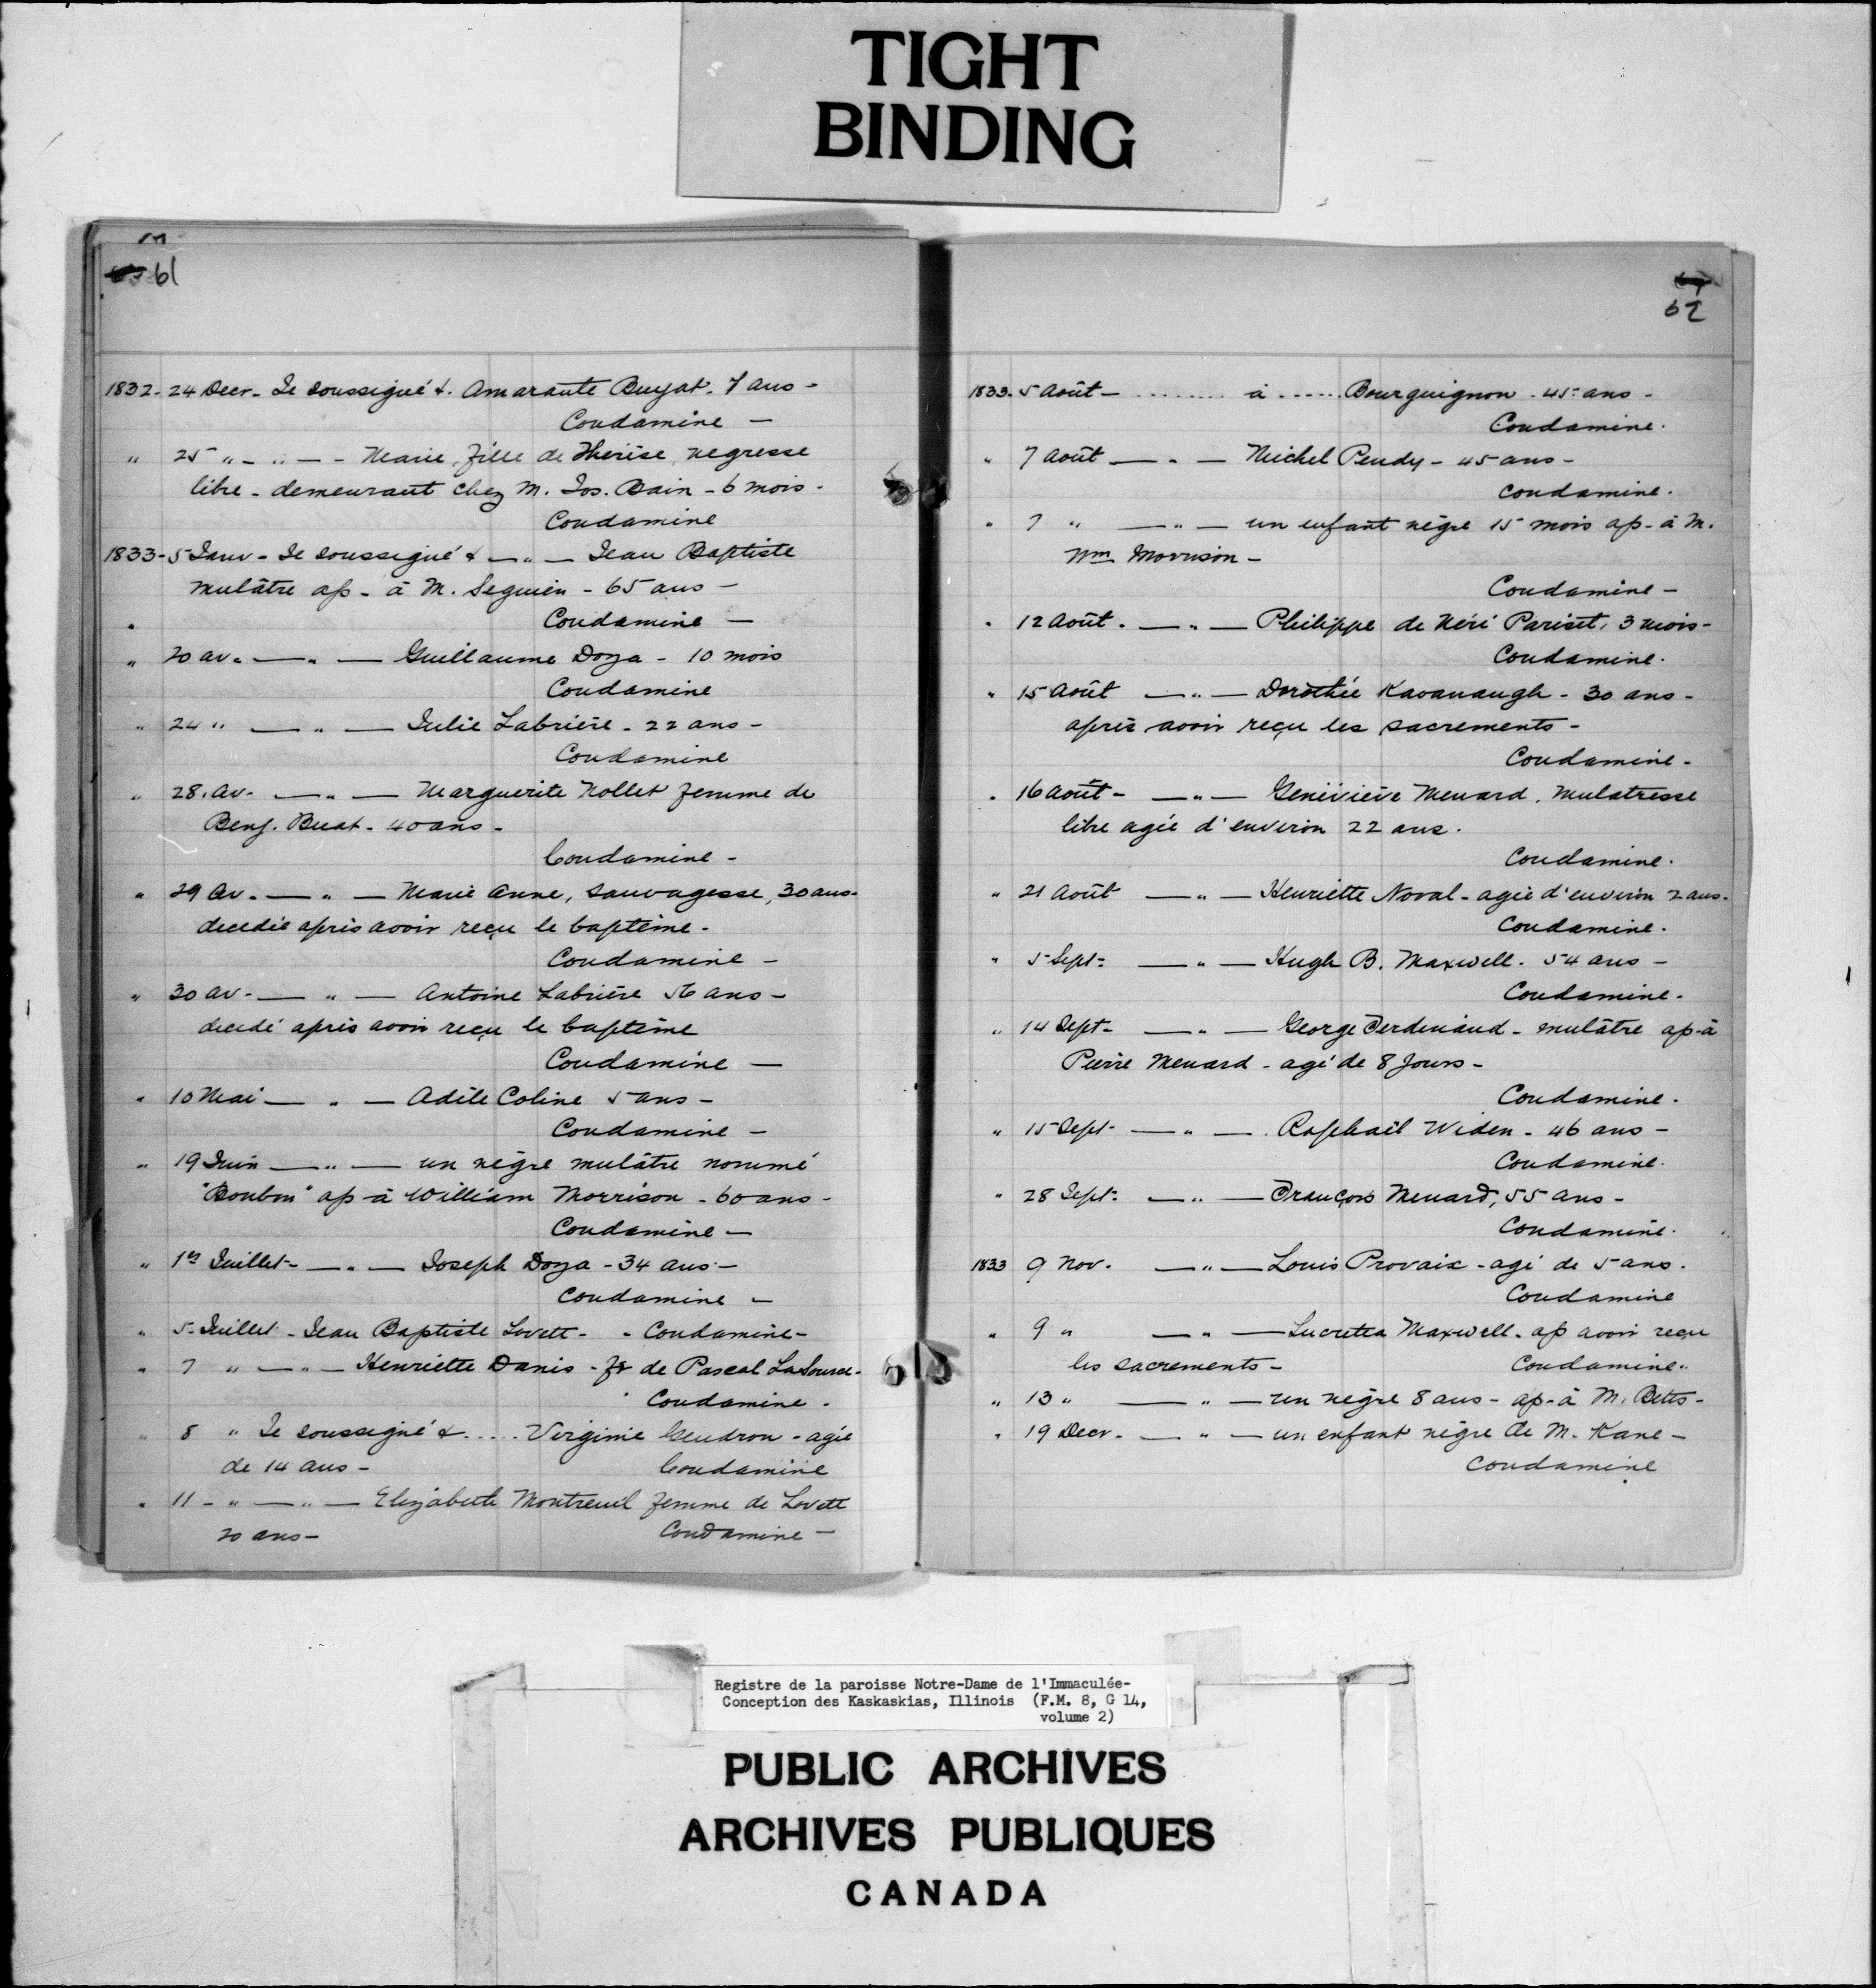 TIGHT
BINDING
61
1832 - 24 Decr - Je soussigné &. Amarante Buyat. 7 ans -
Condamine -
" 25 " - " - - Marie, fille de Thérèse, negresse
libre - demeurant chez M. Jos. Bain - 6 mois -
Condamine
1833 - 5 Janv - Je soussigné & - " - Jean Baptiste
mulâtre ap - à M. Seguin - 65 ans -
" Condamine -
" 20 av. - " - Guillaume Doza - 10 mois
Condamine
" 24 " - " - Julie Labrière - 22 ans -
Condamine
" 28. av. - " - Marguerite Nollet femme de
Benj. Buat - 40 ans -
Condamine -
" 29 av. - " - Marie Anne, sauvagesse, 30 ans -
decedée après avoir reçu le baptême -
Condamine -
" 30 av - " - Antoine Labrière 56 ans -
decedé après avoir reçu le baptême
Condamine -
" 10 Mai - " - Adèle Coline 5 ans -
Condamine -
" 19 Juin - " - un nègre mulâtre nommé
"Bonbon" ap - à William Morrison - 60 ans -
Condamine -
" 1er Juillet - " - Joseph Doza - 34 ans -
Condamine -
" 5 - Juillet - Jean Baptiste Lovett - - Condamine -
" 7 " - " - Henriette Danis - fe de Pascal LaSource -
Condamine -
" 8 " Je soussigné & ..... Virginie Gendron - agée
de 14 ans - Condamine
" 11 - " - " - Elizabeth Montreuil femme de Lovett
20 ans - Condamine -
62
1833 - 5 Août - ........ à ...... Bourguignon - 45 ans -
Condamine.
" 7 août - " - Michel Pendy - 45 ans -
Condamine.
" 7 " - " - un enfant nègre 15 mois ap - à M.
Wm Morrison -
Condamine -
" 12 Août. - " - Philippe de Néri Pariset, 3 mois -
Condamine.
" 15 Août - " - Dorothée Kavanaugh - 30 ans -
après avoir reçu les sacrements -
Condamine -
" 16 août - - " - Geneviève Menard, mulatresse
libre agée d'environ 22 ans.
Condamine.
" 21 Août - " - Henriette Noval - agée d'environ 2 ans -
Condamine.
" 5 Sept - " - Hugh B. Maxwell. 54 ans -
Condamine.
" 14 Sept - - " - George Ferdinand - mulâtre ap - à
Pierre Menard - agé de 8 jours -
Condamine.
" 15 Sept - - " - Raphaël Widen - 46 ans -
Condamine.
" 28 Sept - " - François Menard, 55 ans -
Condamine.
1833 9 Nov. - " - Louis Provaix - agé de 5 ans.
Condamine
" 9 " - " - Lucretia Maxwell - ap avoir reçu
les sacrements - Condamine.
" 13 " - " - un nègre 8 ans - ap - à M. Betts -
" 19 Decr - " - un enfant nègre de M. Kane -
Condamine
Registre de la paroisse Notre-Dame de l'Immaculée-
Conception des Kaskaskias, Illinois (F.M. 8, G 14,
volume 2)
PUBLIC ARCHIVES
ARCHIVES PUBLIQUES
CANADA